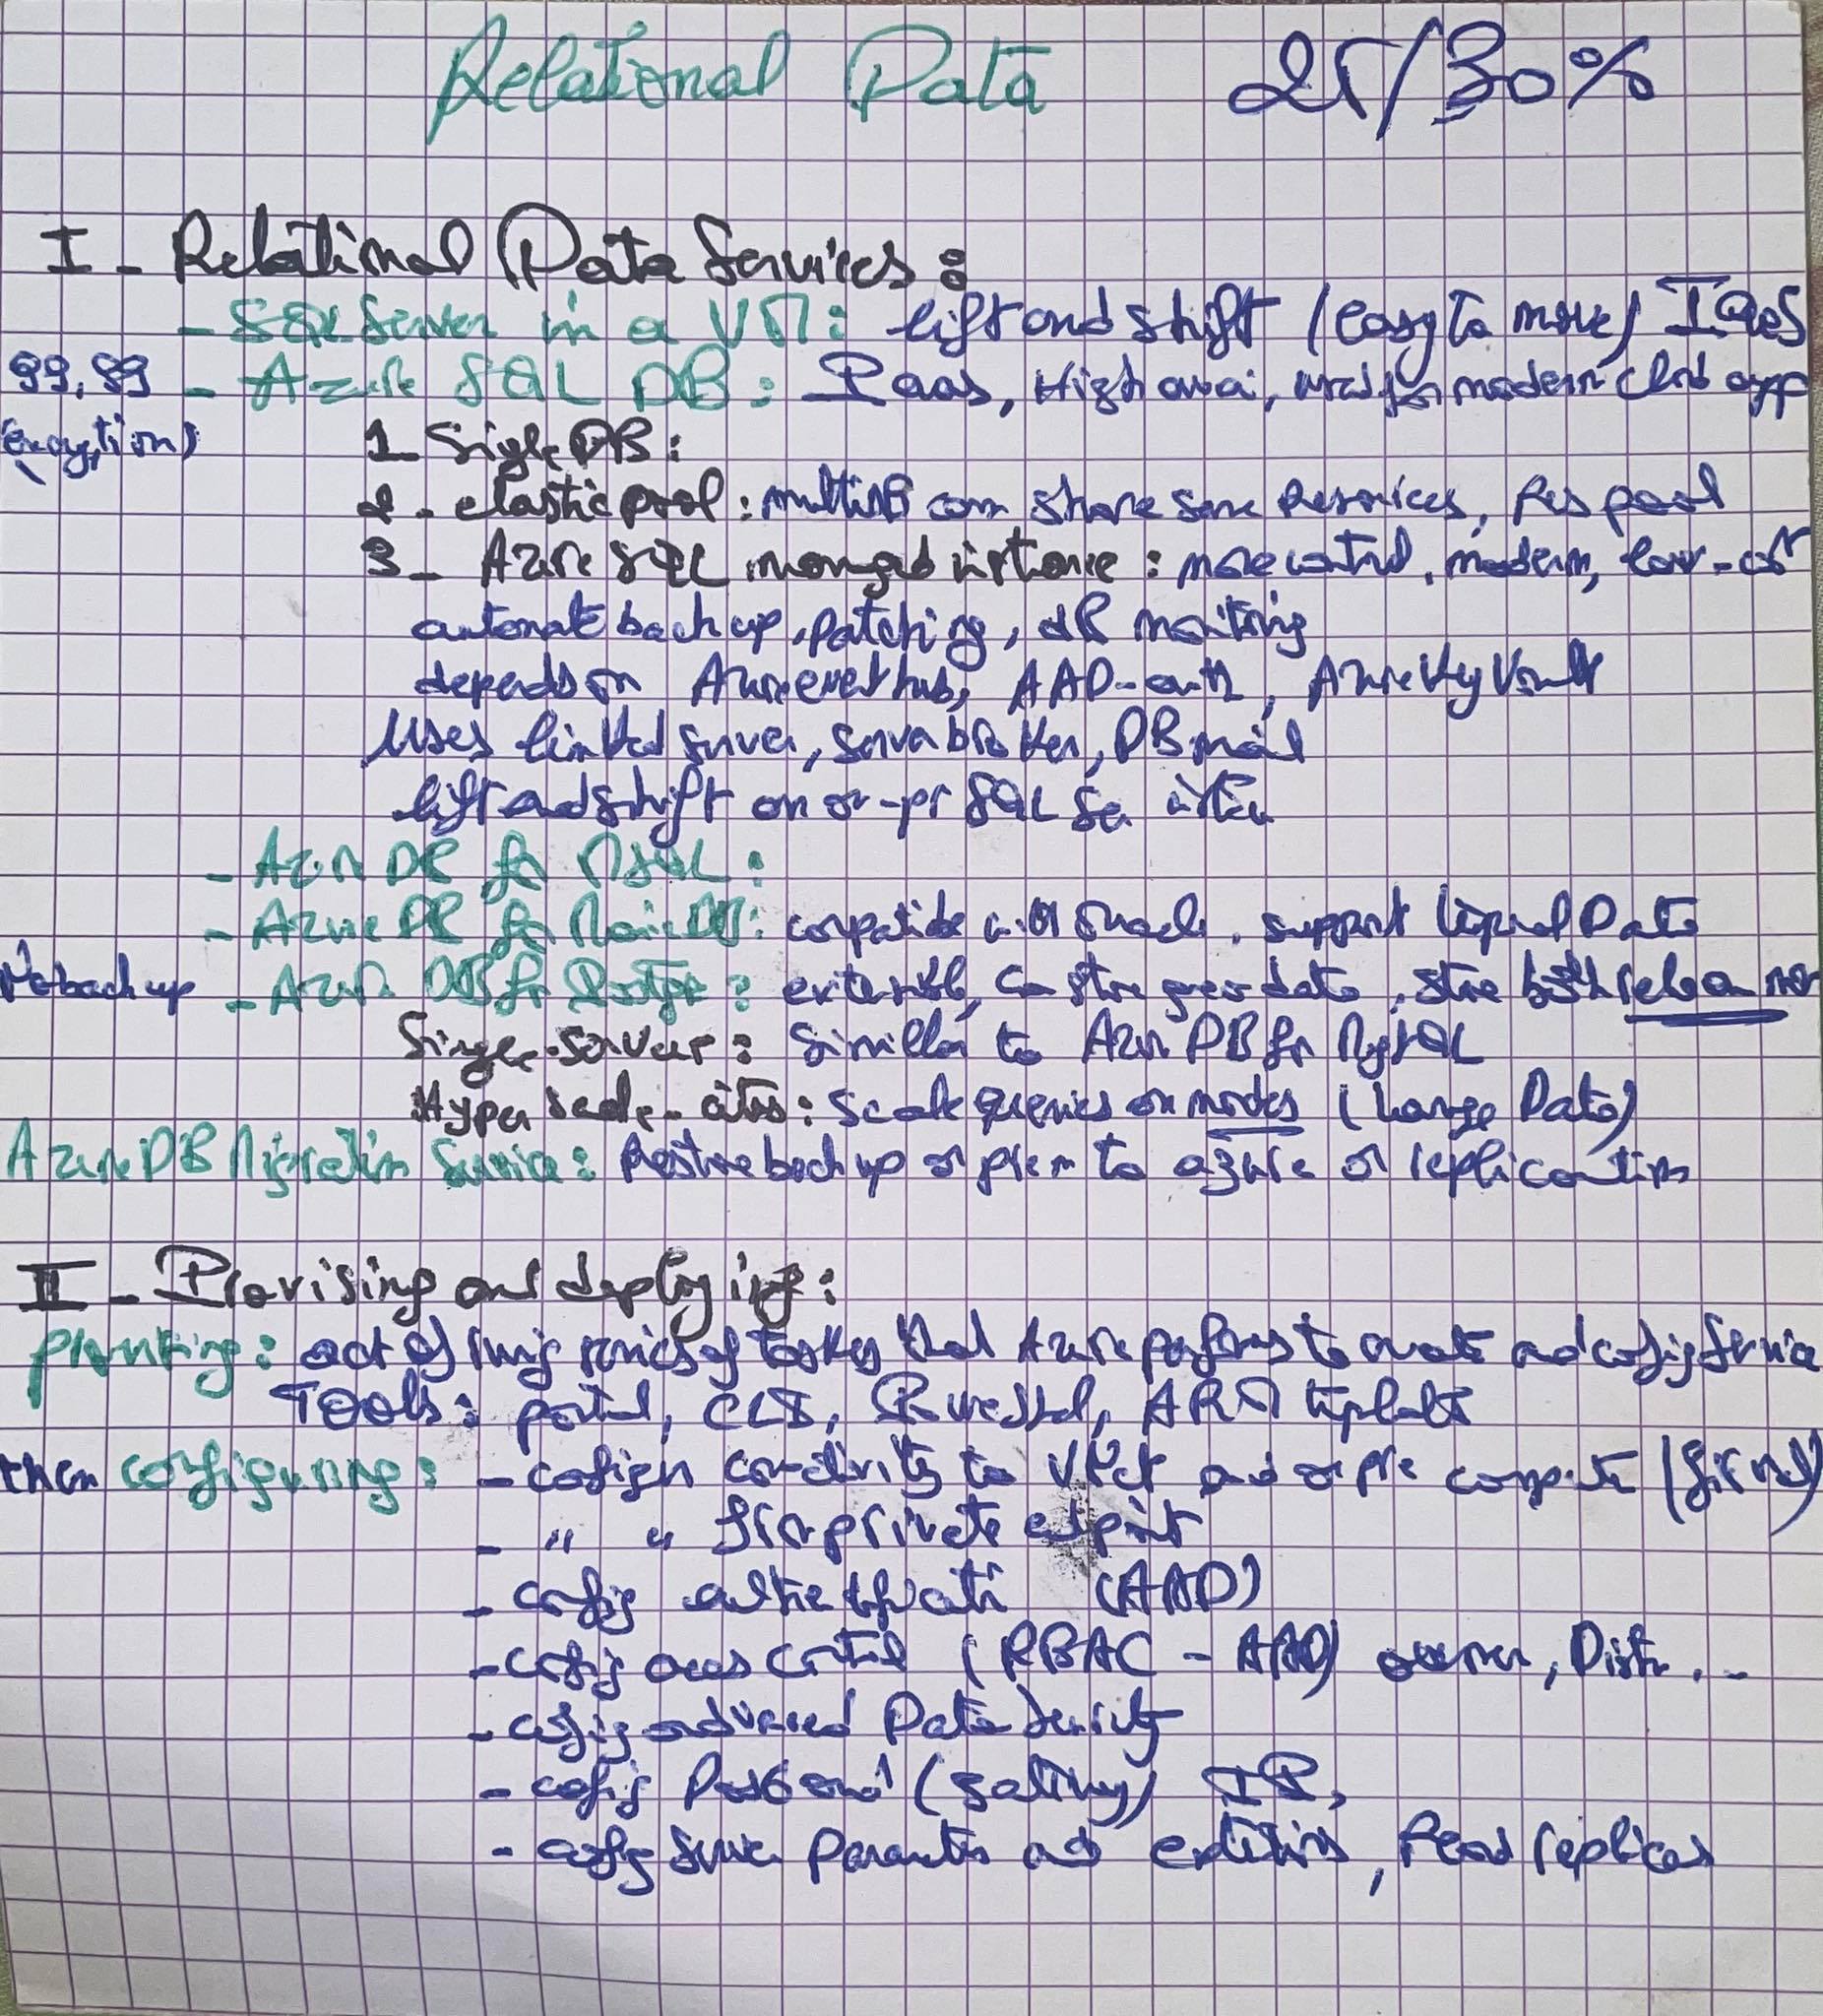 Relational Data 25/30%
I - Relational Data Services :
- SQL Server in a VM : lift and shift (easy to move) IaaS
99,99 - Azure SQL DB : Paas, High avai, used for modern cloud app
1 - Single DB :
2 - elastic pool : multi DB can share same Resources,
3 - Azure SQL managed instance : more control, modern, low-cost
automate back up, patching, monitoring
depends on Azure event hub, AAD-auth, Azure Key Vault
Uses linked server, broker, DB mail
lift and shift on SQL
- Azure DB for MySQL :
- Azure DB for MariaDB : compatible with support Data
No backup - Azure DB for : extensible, can store data, store both
Single-server : similar to Azure DB for MySQL
Hyper scale - citus : scale queries on nodes (Large Data)
Azure DB Migration Service : Restore back up to azure or replication
II - and deploying :
act of series of tasks that Azure performs to create and config service
TOOLs : portal, CLI, ARM
then configuring : - connectivity to VNet and compute
- " " private endpoint
- config (AAD)
- config access control (RBAC - AAD) owner,
- config advanced Data Security
- config IP,
- config server and extensions, Read replicas